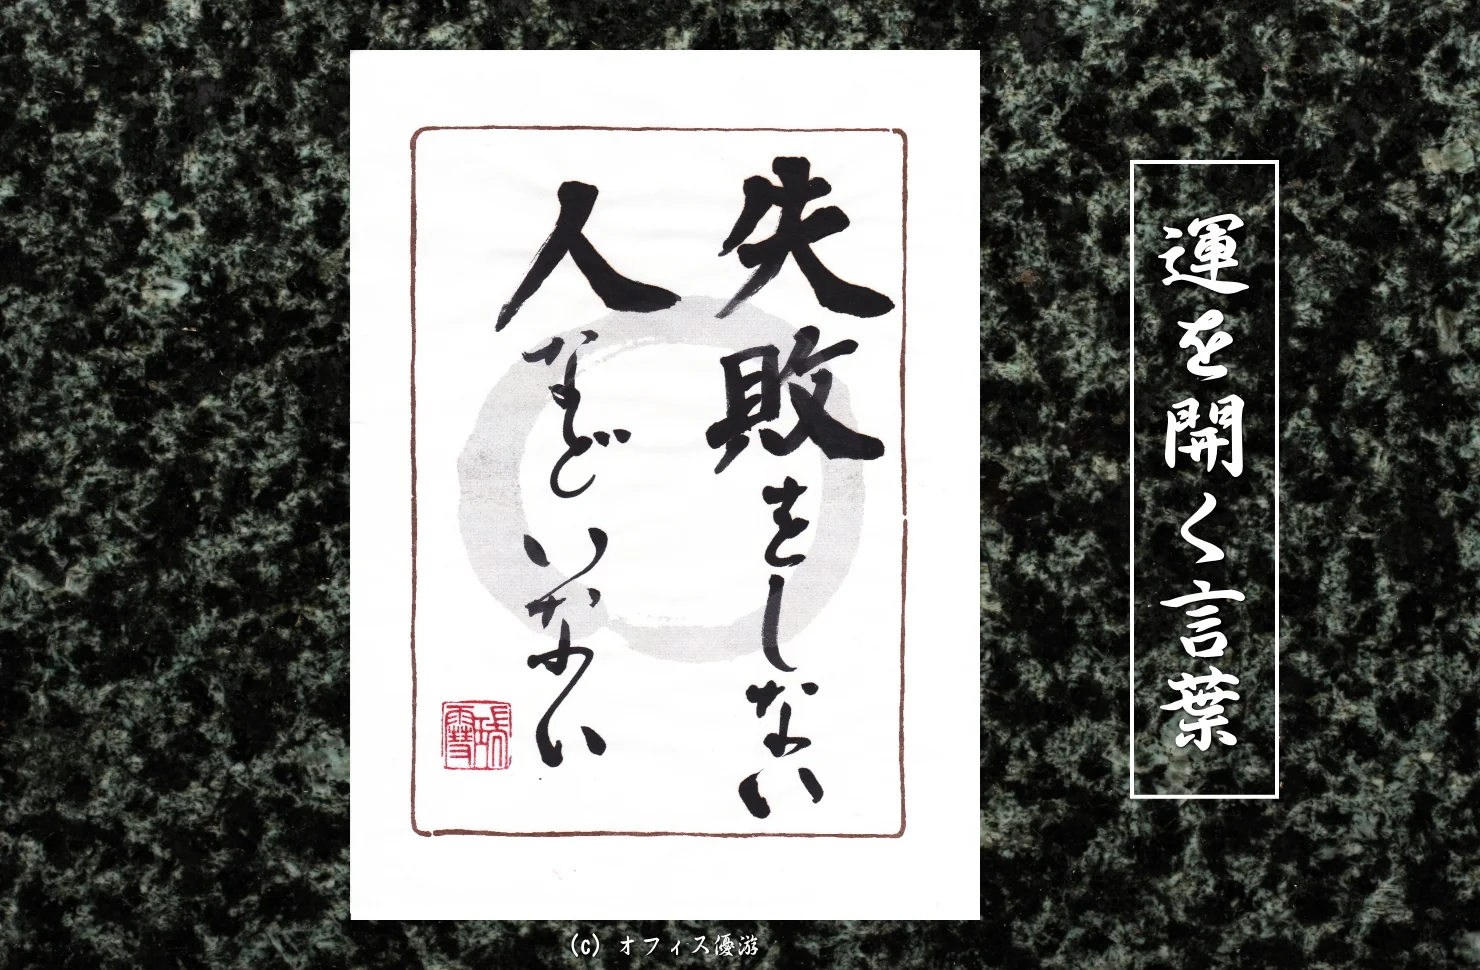 運を開く言葉
失敗をしない
人などいない
(c) オフィス優游